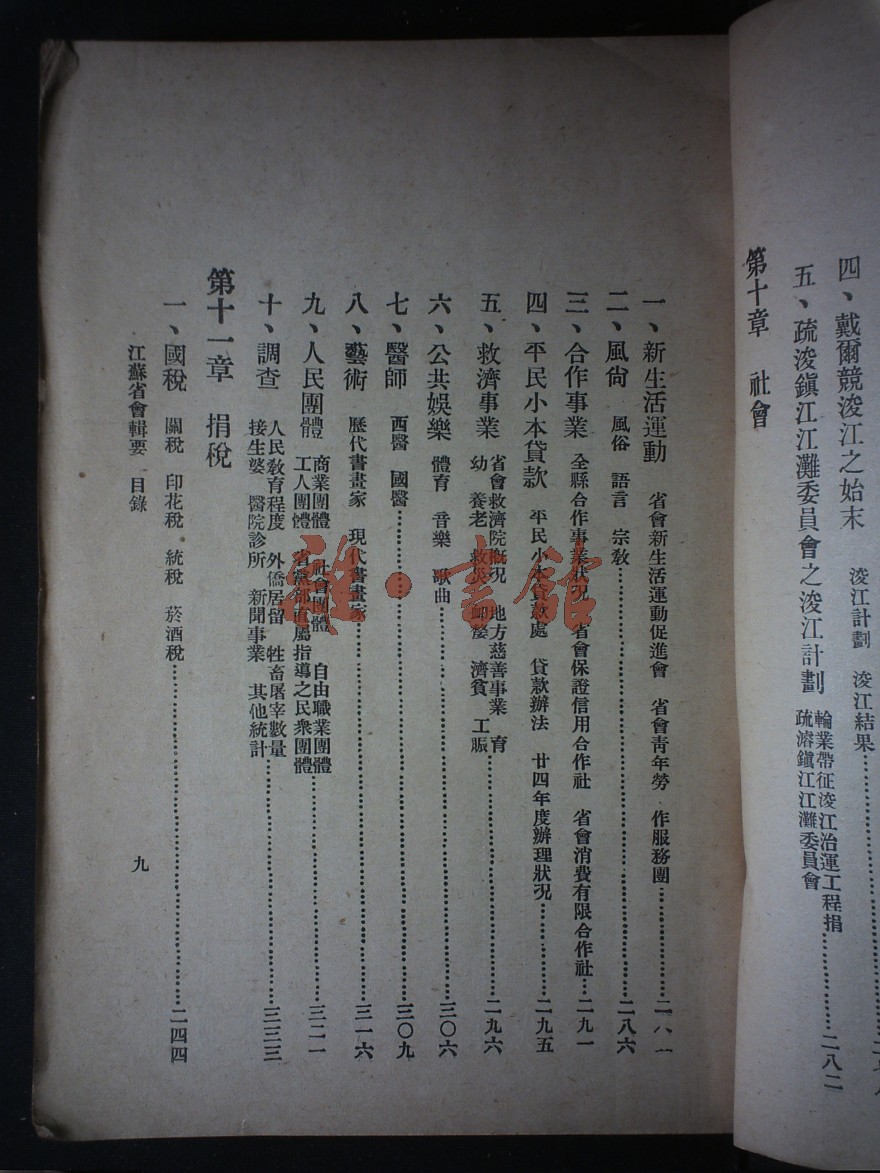 四、戴爾競浚江之始末 浚江計劃 浚江結果
五、疏浚鎭江江灘委員會之浚江計劃 輪業帶征浚江治運工程捐 疏溶鎭江江灘委員會……二八二
第十章 社會
一、新生活運動 省會新生活運動促進會 省會靑年勞作服務團……二八一
二、風尙 風俗 語言 宗敎……二八六
三、合作事業 全縣合作事業狀况 省會保證信用合作社 省會消費有限合作社…二九一
四、平民小本貸款 平民小本貸款處 貸款辦法 廿四年度辦理狀况……二九五
五、救濟事業 省會救濟院概况 地方慈善事業 育幼 養老 救災 卹嫠 濟貧 工賑……二九六
六、公共娛樂 體育 音樂 歌曲……三〇六
七、醫師 西醫 國醫……三〇九
八、藝術 歷代書畫家 現代書畫家……三一六
九、人民團體 商業團體 社會團體 自由職業團體 工人團體 省黨部直屬指導之民衆團體……三二一
十、調查 人民敎育程度 外僑居留 牲畜屠宰數量 接生婆 醫院診所 新聞事業 其他統計……三三三
第十一章 捐稅
一、國稅 關稅 印花稅 統稅 菸酒稅……二四四
江蘇省會輯要 目錄
九
雅·書館